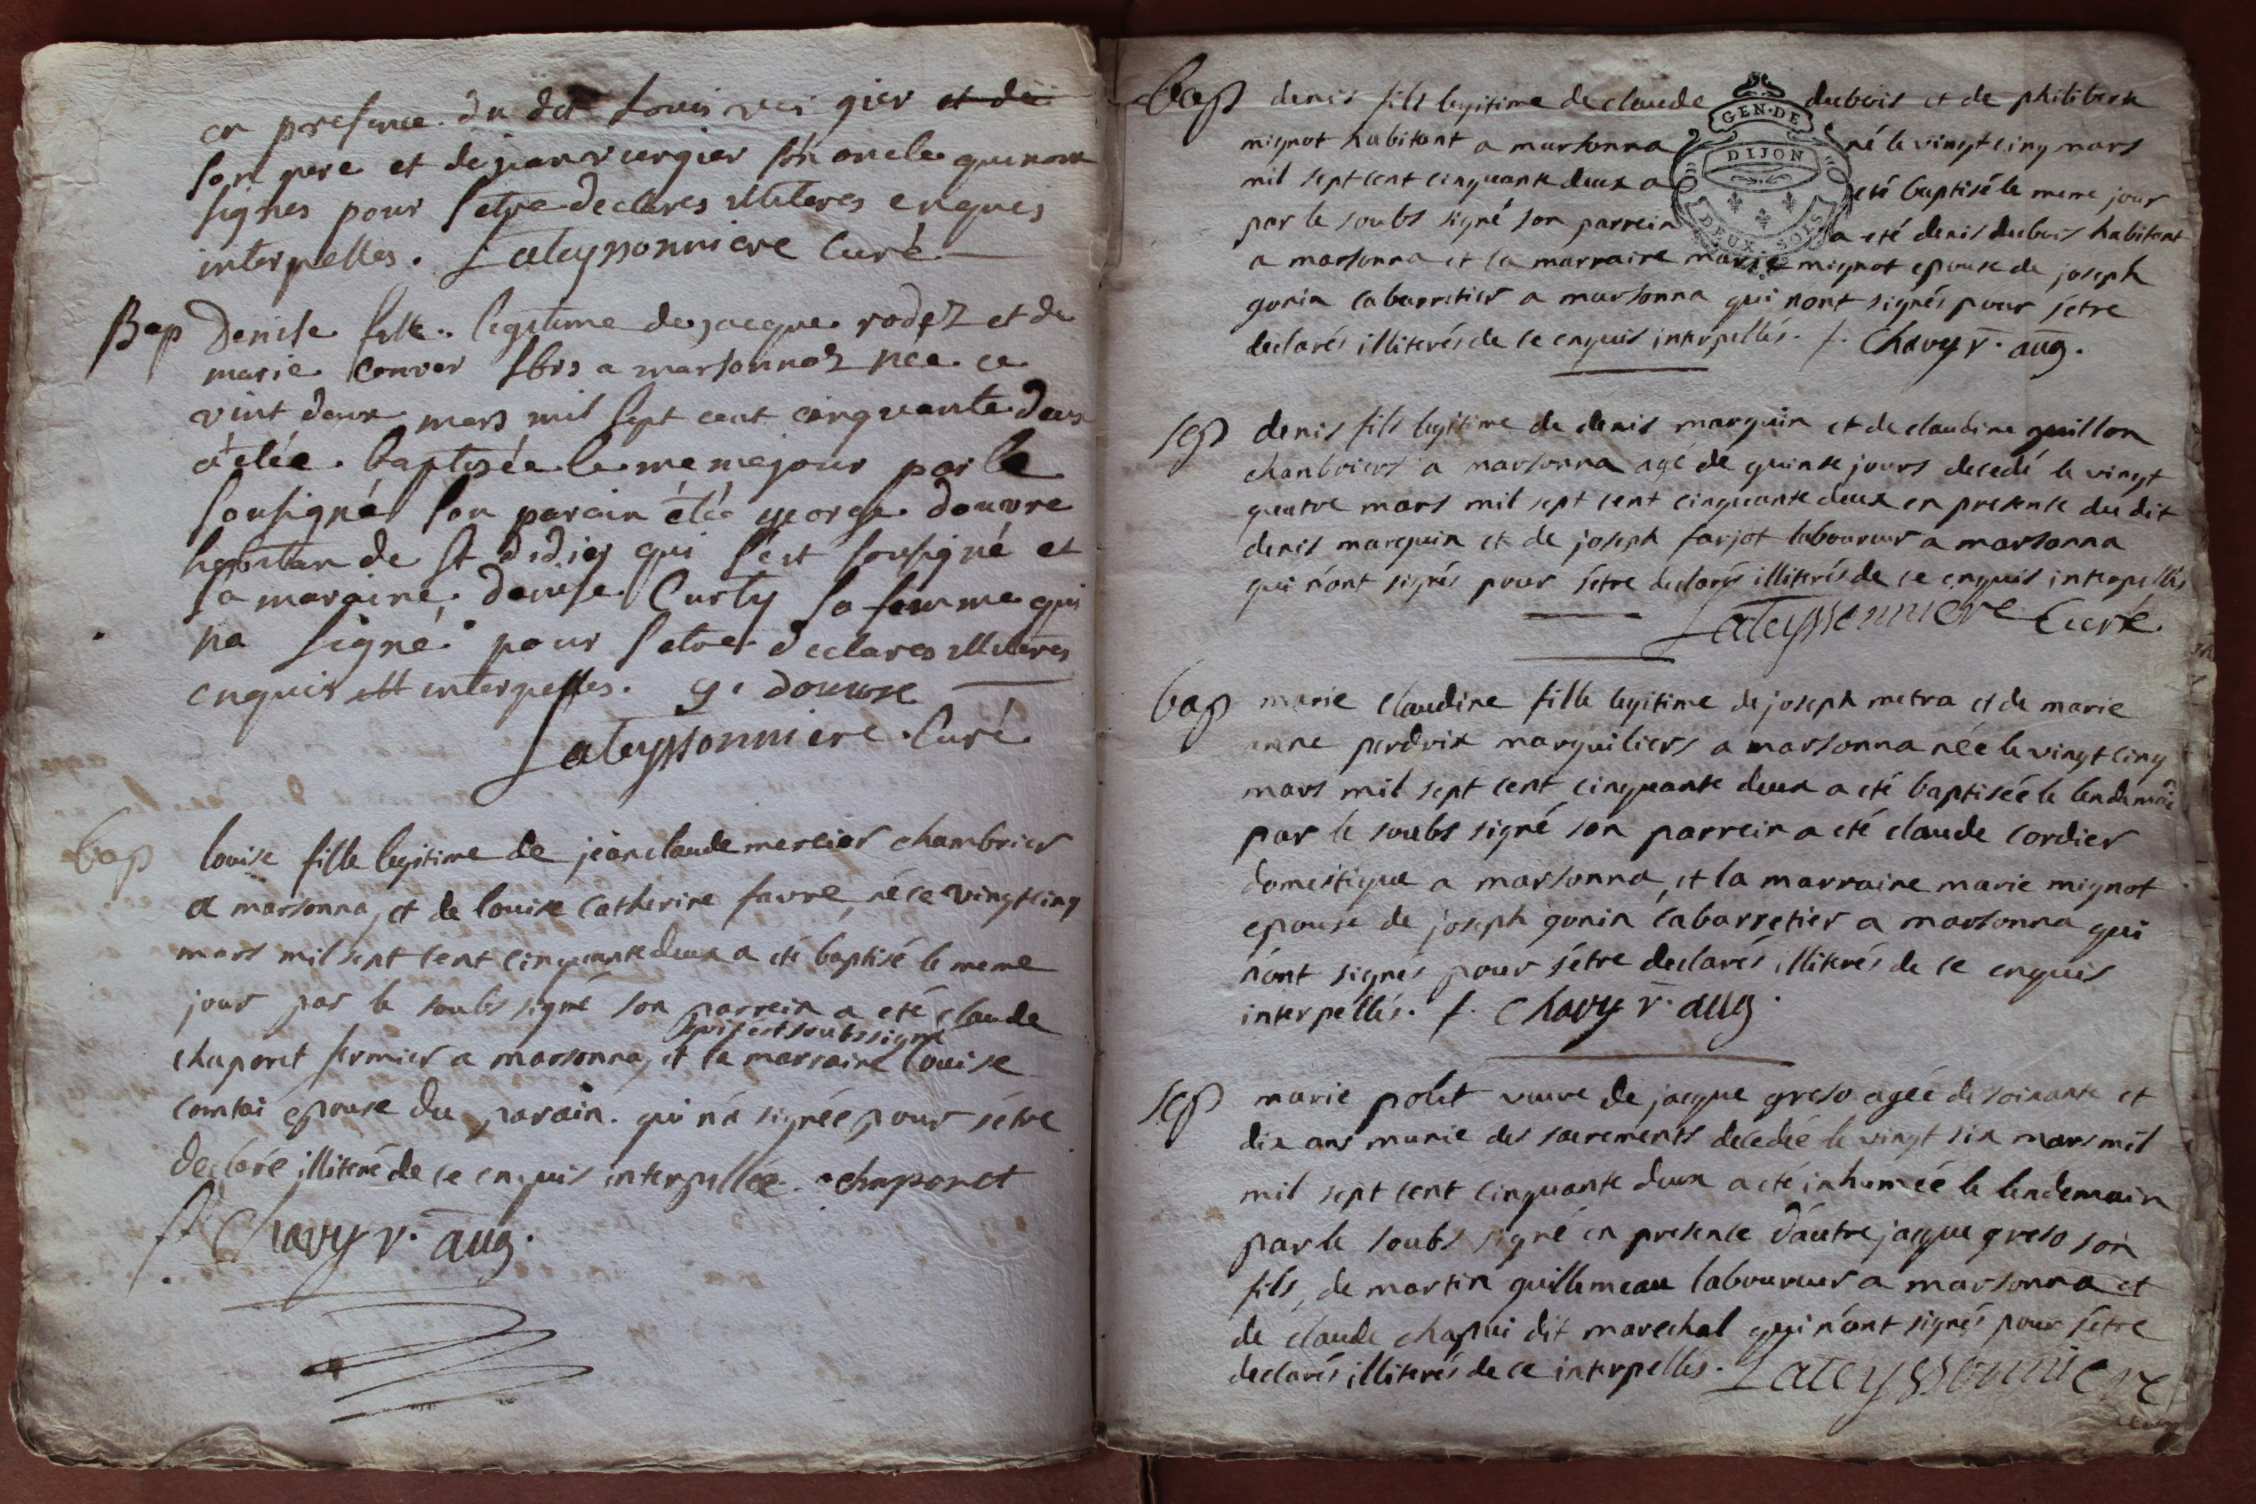 en presence du dit Louis vergier et de
son pere et de jean vuergier son oncle qui nont
signes pour s'etre declares illiteres enquis
interpelles. Lateyssonniere Curé
Bap Denise fille legitime de jacque rodet et de
marie Conver sbrs a marsonnas née ce
vint deux mars mil sept cent cinquante deux
a étée baptisée le meme jour par le
sousigné son parain étée george douvre
habitan de st didier qui s'est sousigné et
sa maraine denise Curty sa femme qui
na signé pour s'etre declares illiteres
enquis et interpelles. g. douvre
Lateyssonniere Curé
bap louise fille legitime de jean claude mercier chambrier
a marsonna, et de louise Catherine favre, né ce vingt cinq
mars mil sept cent cinquante deux a eté baptisé le meme
jour par le soubs signé son parrein a eté claude
qui s'est soubssigné
chaponet fermier a marsonna, et la marraine louise
comtai epouse du parain. qui n'a signée pour s'étre
declaré illiteré de ce enquis interpellée. chaponet
f. Chavy r. aug.
bap denis fils legitime de claude dubois et de philiberte
GEN. DE
DIJON
DEUX SOLS
mignot habitant a marsonna né le vingt cinq mars
mil sept cent cinquante deux a eté baptisé le meme jour
par le soubs signé son parrein a eté denis dubois habitant
a marsonna et la marraine marie mignot epouse de joseph
gonin cabarretier a marsonna qui nont signés pour s'étre
declarés illiterés de ce enquis interpellés. f. Chavy r. aug.
sep denis fils legitime de denis marquin et de claudine guillon
chambriers a marsonna agé de quinse jours decedé le vingt
quatre mars mil sept cent cinquante deux en presense du dit
denis marquin et de joseph farjot laboureur a marsonna
qui n'ont signés pour s'étre declarés illiterés de ce enquis interpellés
Lateyssonniere Curé.
bap marie claudine fille legitime de joseph metra et de marie
anne perdrix marguiliers a marsonna née le vingt cinq
mars mil sept cent cinquante deux a eté baptiséé le lendemain
par le soubs signé son parrein a eté claude cordier
domestique a marsonna, et la marraine marie mignot
epouse de joseph gonin cabarretier a marsonna qui
n'ont signés pour s'étre declarés illiterés de ce enquis
interpellés. f. Chavy r. aug.
sep marie polit veuve de jacque greso agée de soixante et
dix ans munie des sacrements decedéé le vingt six mars mil
mil sept cent cinquante deux a eté inhuméé le lendemain
par le soubs signé en presense d'autre jacque greso son
fils, de martin guillemeau laboureur a marsonna et
de claude chapui dit marechal qui n'ont signés pour s'étre
declarés illiterés de ce interpellés. Lateyssonniere